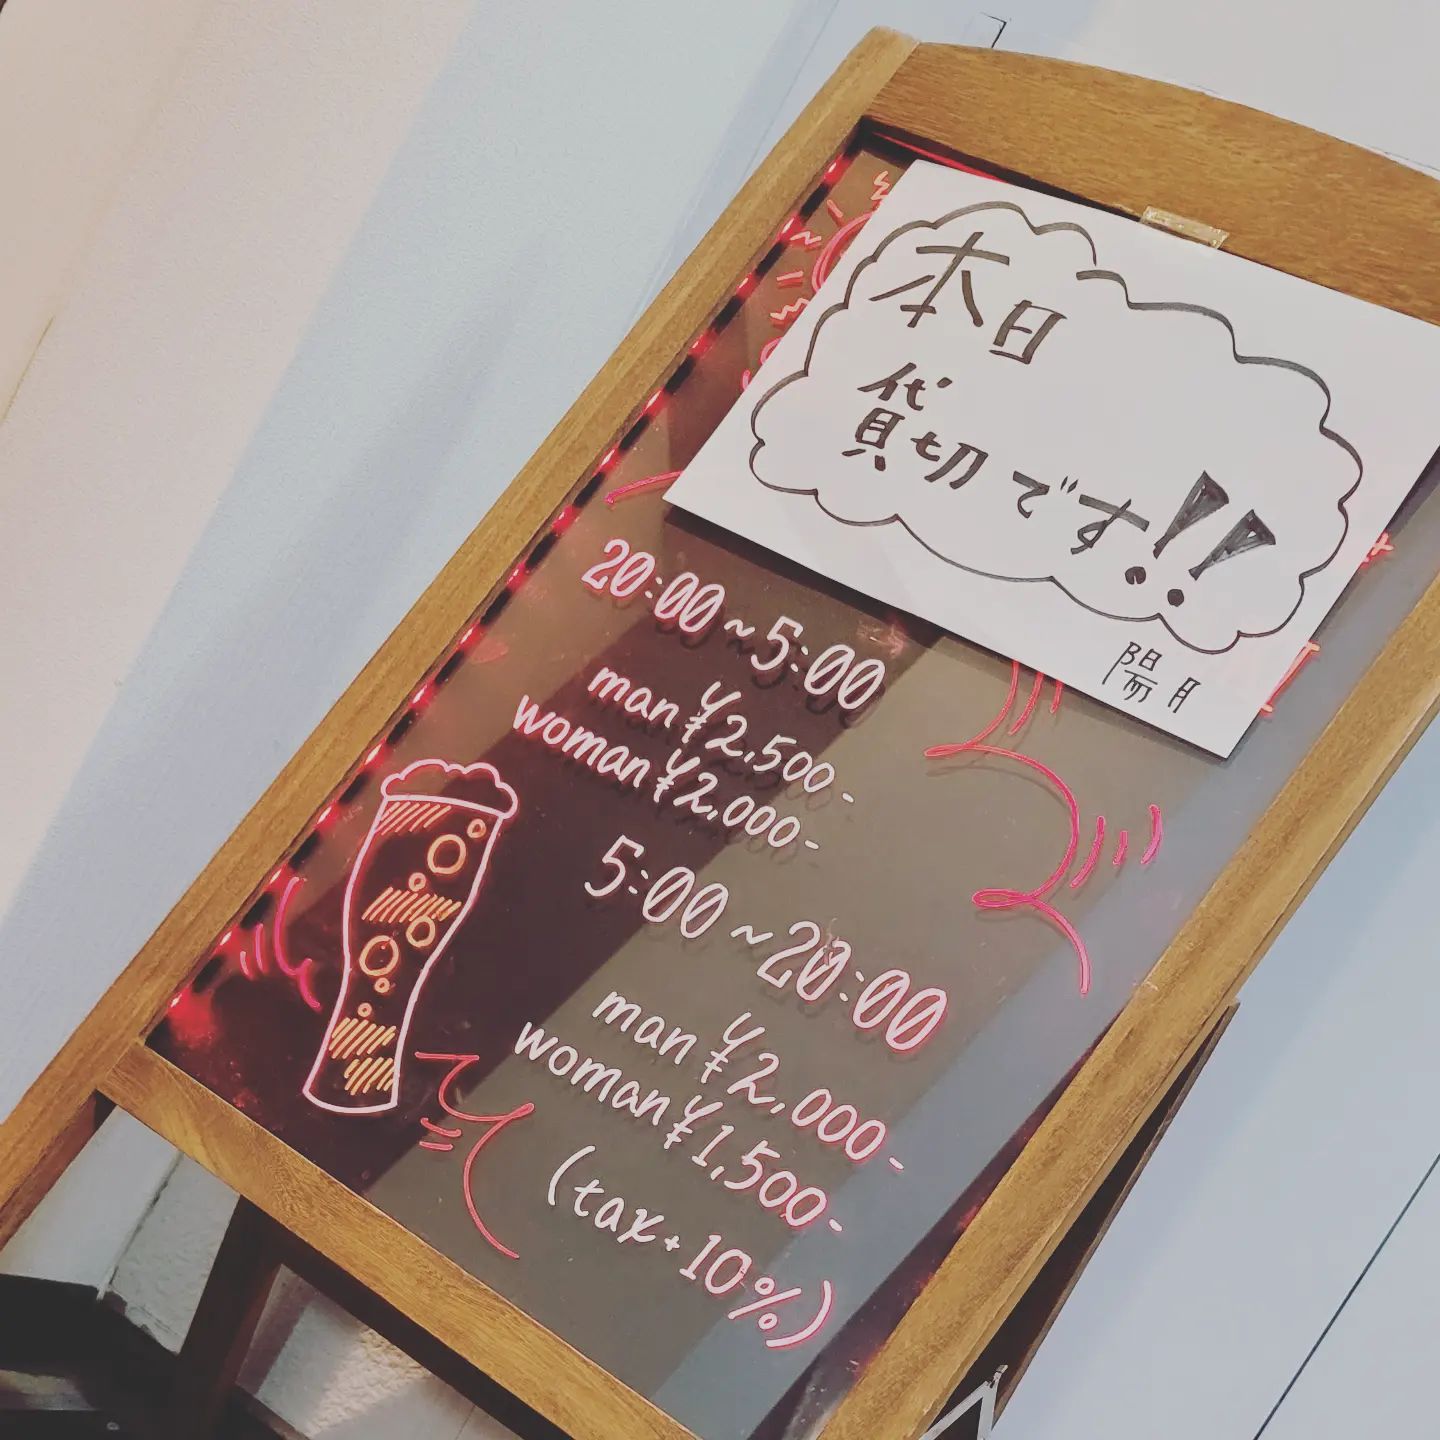 本日
貸切です!!
陽月
20:00~5:00
man ¥2,500-
woman ¥2,000-
5:00~20:00
man ¥2,000-
woman ¥1,500-
(tax+10%)